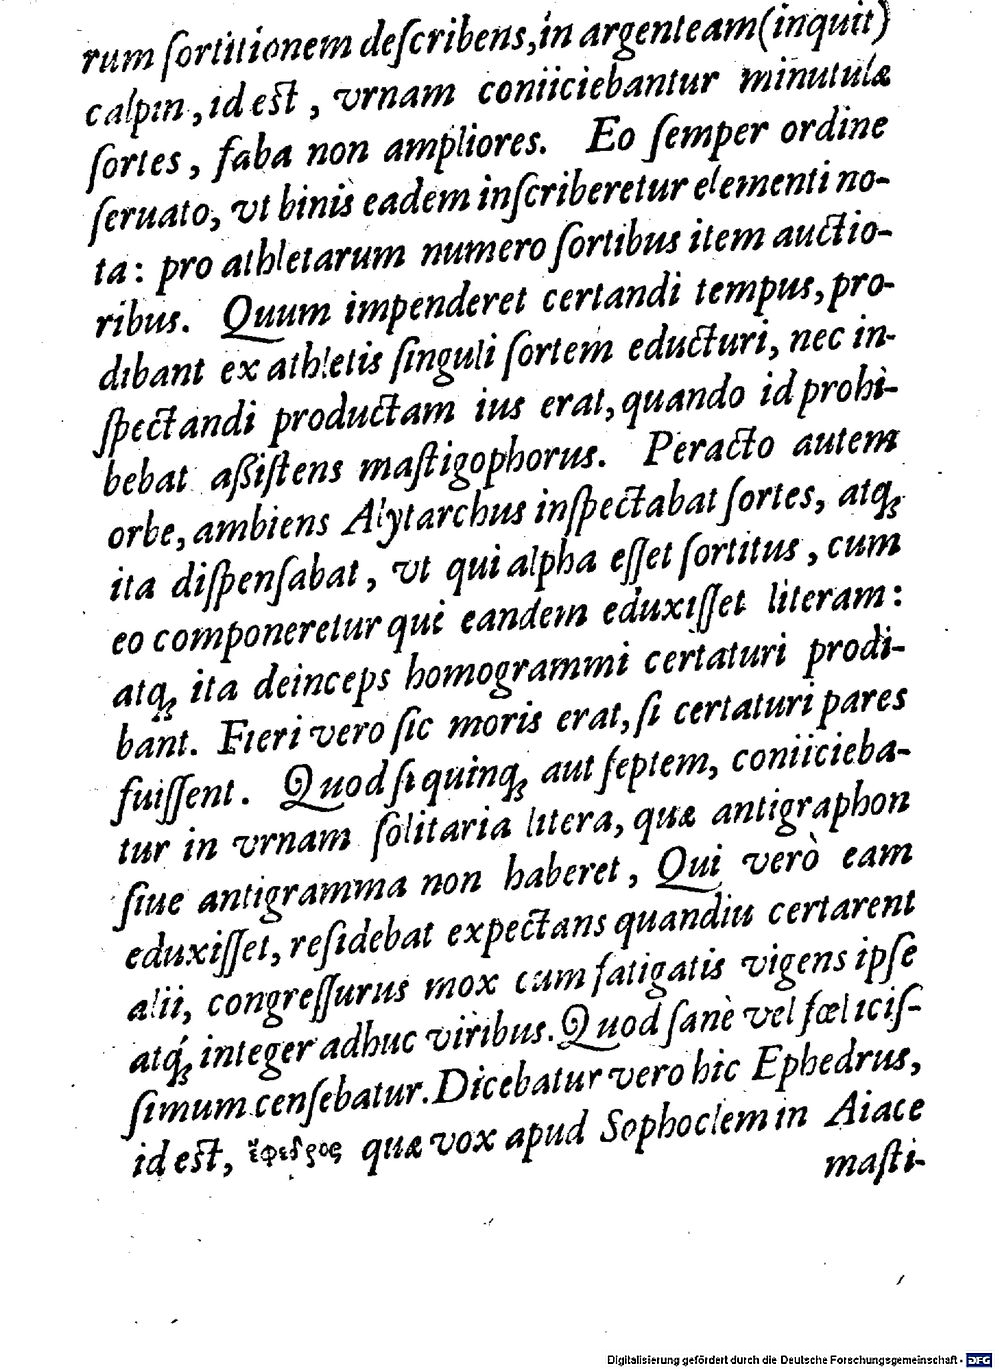 rum ſortitionem deſcribens,in argenteam(inquit)
calpin, id eſt , vrnam coniiciebantur minutulæ
ſortes , faba non ampliores. Eo ſemper ordine
ſeruato, vt binis eadem inſcriberetur elementi no-
ta: pro athletarum numero ſortibus item auctio-
ribus. Quum impenderet certandi tempus,pro-
dibant ex athletis ſinguli ſortem educturi, nec in-
ſpectandi productam ius erat,quando id prohi-
bebat aßiſtens maſtigophorus. Peracto autem
orbe, ambiens Alytarchus inſpectabat ſortes, atq;
ita diſpenſabat , vt qui alpha eſſet ſortitus , cum
eo componeretur qui eandem eduxiſſet literam:
atq; ita deinceps homogrammi certaturi prodi-
bant. Fieri vero ſic moris erat,ſi certaturi pares
fuiſſent. Quod ſi quinq; aut ſeptem, coniicieba-
tur in vrnam ſolitaria litera, quæ antigraphon
ſiue antigramma non haberet , Qui verò eam
eduxiſſet, reſidebat expectans quandiu certarent
alii, congreſſurus mox cum fatigatis vigens ipſe
atq́; integer adhuc viribus.Quod ſanè vel fœliciſ-
ſimum cenſebatur.Dicebatur vero hic Ephedrus,
id eſt, ἔφεδρος quæ vox apud Sophoclem in Aiace
maſti-
Digitalisierung gefördert durch die Deutsche Forschungsgemeinschaft - DFG